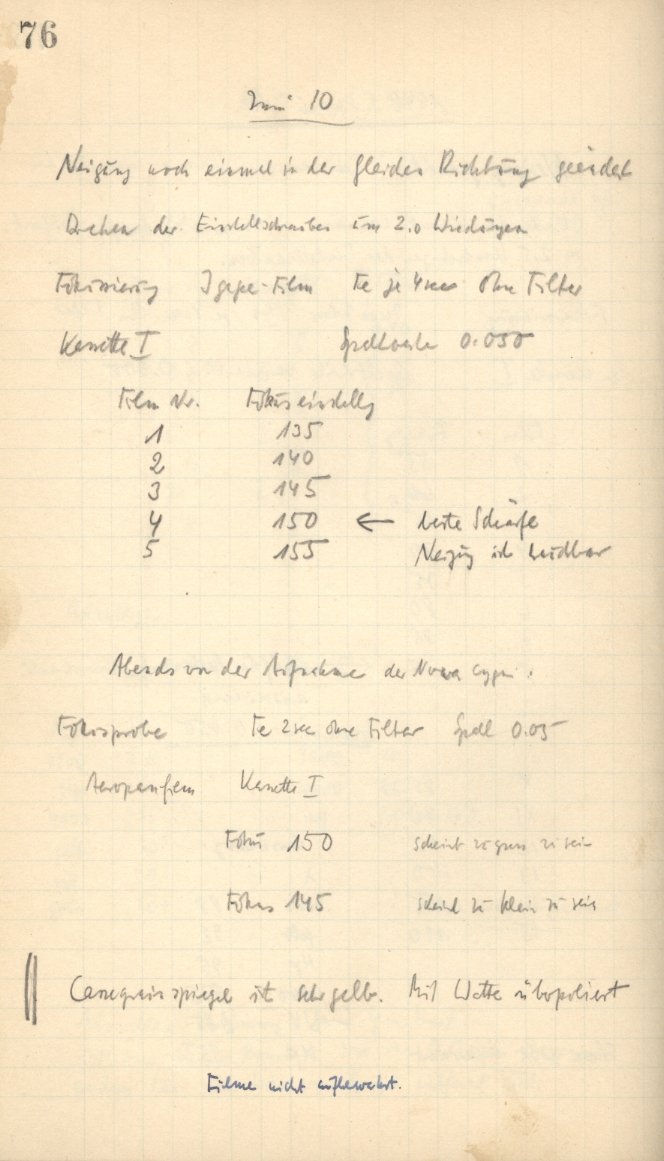 76
Juni 10
Neigung noch einmal in der gleichen Richtung geändert
Drehen der Einstellschrauben um 2.0 Windungen
Fokussierung Isopan-Film Fe je 4 sec ohne Filter
Kassette I Spaltweite 0.050
Film Nr. Fokuseinstellg
1 135
2 140
3 145
4 150 ← beste Schärfe
5 155 Neigung ist
Abends vor der Aufnahme der Nova Cygni.
Fokusprobe Fe 2 sec ohne Filter Spalt 0.05
Kassette I
Fokus 150 scheint zu gross zu sein
Fokus 145 scheint zu klein zu sein
Cassegrainspiegel ist sehr gelb. Mit Watte überpoliert
Filme nicht aufbewahrt.